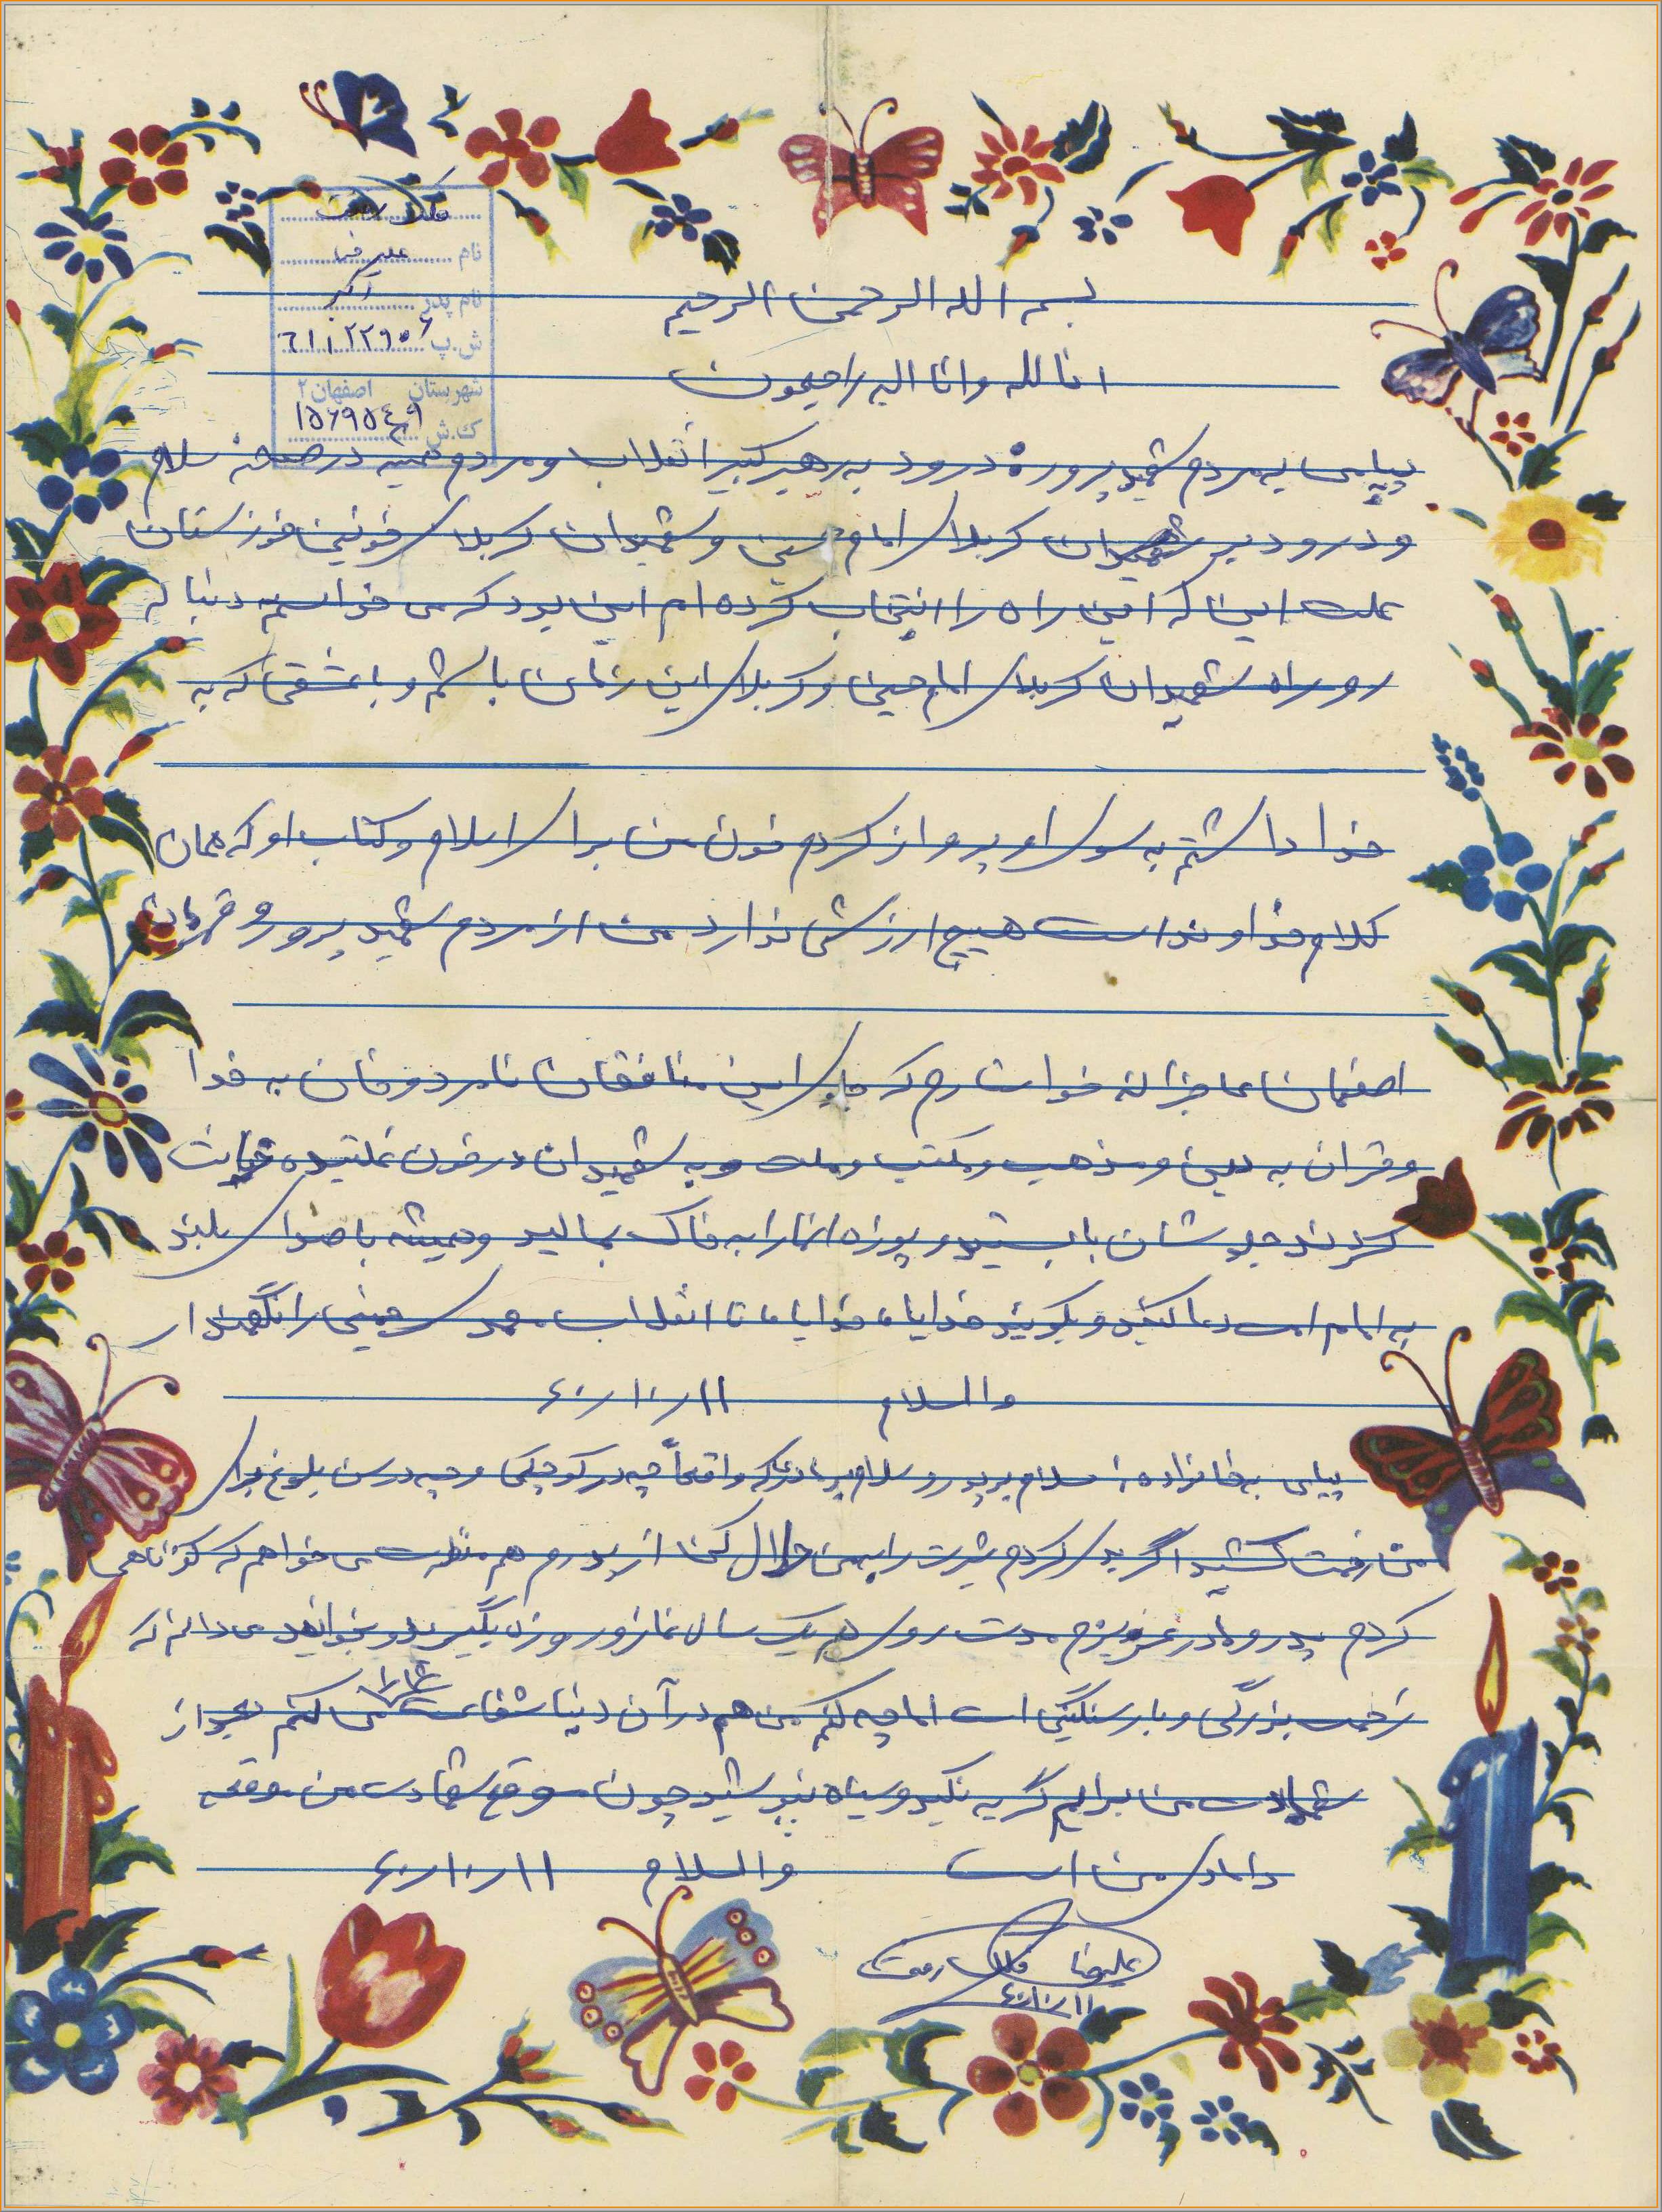 فلک رفعت
نام علیرضا
نام پدر اکبر
ش.پ
شهرستان اصفهان ۲
ک.ش ۱۵۶۹۵۴۹
بسم الله الرحمن الرحیم
انا لله و انا الیه راجعون
پیامی به مردم شهید پروره درود به رهبر کبیر انقلاب و مردم همیشه در صحنه سلام
و درود بر شهیدان کربلای امام حسین و شهیدان کربلای خونین خوزستان
علت این که این راه را انتخاب کرده ام این بود که می خواستم دنباله
رو راه شهیدان کربلای امام حسین و کربلای این زمان باشم و با عشقی که به
خدا داشتم به سوی او پرواز کردم خون من برای اسلام و کتاب او که همان
کلام خداوند است هیچ ارزشی ندارد من از مردم شهید پرور و قهرمان
اصفهان عاجزانه خواستارم که جلوی این منافقان نامرد و خائن به خدا
و قران به دین و مذهب و مکتب و ملت و به شهیدان در خون غلتیده خیانت
کردند جلوشان باایستید و پوزه انها را به خاک بمالید و همیشه با صدای بلند
به امام امت دعا کنید و بگوئید خدایا خدایا تا انقلاب مهدی خمینی را نگهدار
والسلام ۱۱ ر ۱۰ ر ۶۰
پیامی به خانواده: سلام بر پدر و سلام بر مادری که واقعاً چه در کوچکی و چه در سن بلوغ برای
من زحمت کشید اگر بدی کردم شیرت را به من حلال کن از پدرم هم می خواهم که کوتاهی
کردم پدر و مادر عزیزم مدت روی هم یک سال نماز و روزه بگیرید و بخوانید می دانم که
زحمت بزرگی و بار سنگینی است اما چه کنم من هم در آن دنیا شفاعت شما را می کنم بعد از
شهادت من برایم گریه نکنید و سیاه نپوشید چون موقع شهادت من موقعه
دامادی من است والسلام ۱۱ ر ۱۰ ر ۶۰
علیرضا فلک رفعت
۱۱ ر ۱۰ ر ۶۰